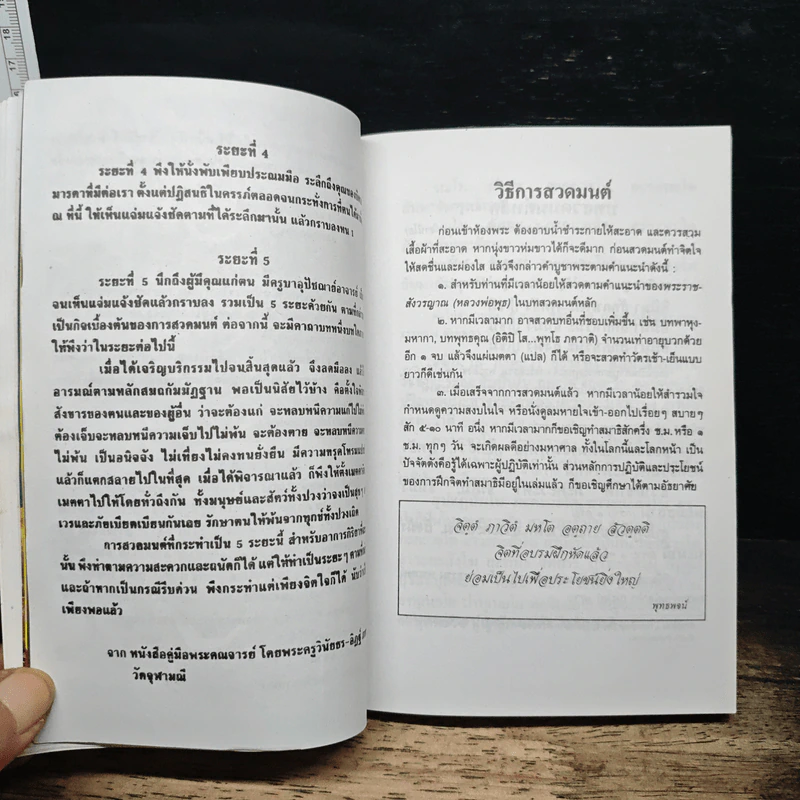 ระยะที่ 4
ระยะที่ 4 พึงให้นั่งพับเพียบประณมมือ ระลึกถึงคุณของ
มารดาที่มีต่อเรา ตั้งแต่ปฏิสนธิในครรภ์ตลอดจนกระทั่งการที่ตนได้
ณ ที่นี้ ให้เห็นแจ่มแจ้งชัดตามที่ได้ระลึกมานั้น แล้วกราบลงหน
ระยะที่ 5
ระยะที่ 5 นึกถึงผู้มีคุณแก่ตน มีครูบาอุปัชฌาย์อาจารย์
จนเห็นแจ่มแจ้งชัดแล้วกราบลง รวมเป็น 5 ระยะด้วยกัน ตามที่
เป็นกิจเบื้องต้นของการสวดมนต์ ต่อจากนี้ จะมีคาถาบทหนึ่งบทใด
ให้พึงว่าในระยะต่อไปนี้
เมื่อได้เจริญบริกรรมไปจนสิ้นสุดแล้ว จึงลดมือลง
อารมณ์ตามหลักสมถกัมมัฏฐาน พอเป็นนิสัยไว้บ้าง คือตั้งใจ
สังขารของตนและของผู้อื่น ว่าจะต้องแก่ จะหลบหนีความแก่ไป
ต้องเจ็บจะหลบหนีความเจ็บไปไม่พ้น จะต้องตาย จะหลบหนีความ
ไม่พ้น เป็นอนิจจัง ไม่เที่ยงไม่คงทนยั่งยืน มีความทรุดโทรม
แล้วก็แตกสลายไปในที่สุด เมื่อได้พิจารณาแล้ว ก็พึงให้ตั้งเมตตา
เมตตาไปให้โดยทั่วถึงกัน ทั้งมนุษย์และสัตว์ทั้งปวงว่าจงเป็นสุข ๆ
เวรและภัยเบียดเบียนกันเลย รักษาตนให้พ้นจากทุกข์ทั้งปวงเถิด
การสวดมนต์ที่กระทำเป็น 5 ระยะนี้ สำหรับอาการกิริยาที่
นั้น พึงทำตามความสะดวกและถนัดก็ได้ แต่ให้ทำเป็นระยะๆ ตามที่
และถ้าหากเป็นกรณีรีบด่วน พึงกระทำแต่เพียงจิตใจก็ได้ นับว่า
เพียงพอแล้ว
จาก หนังสือคู่มือพระคณจารย์ โดยพระครูวินัยธร-อิฏฐ์
วัดจุฬามณี
วิธีการสวดมนต์
ก่อนเข้าห้องพระ ต้องอาบน้ำชำระกายให้สะอาด และควรสวม
เสื้อผ้าที่สะอาด หากนุ่งขาวห่มขาวได้ก็จะดีมาก ก่อนสวดมนต์ทำจิตใจ
ให้สดชื่นและผ่องใส แล้วจึงกล่าวคำบูชาพระตามคำแนะนำดังนี้ :
๑. สำหรับท่านที่มีเวลาน้อยให้สวดตามคำแนะนำของพระราช-
สังวรญาณ (หลวงพ่อพุธ) ในบทสวดมนต์หลัก
๒. หากมีเวลามาก อาจสวดบทอื่นที่ชอบเพิ่มขึ้น เช่น บทพาหุง-
มหากา, บทพุทธคุณ (อิติปิ โส...พุทโธ ภควาติ) จำนวนเท่าอายุบวกด้วย
อีก ๑ จบ แล้วจึงแผ่เมตตา (แปล) ก็ได้ หรือจะสวดทำวัตรเช้า-เย็นแบบ
ยาวก็ดีเช่นกัน
๓. เมื่อเสร็จจากการสวดมนต์แล้ว หากมีเวลาน้อยให้สำรวมใจ
กำหนดดูความสงบในใจ หรือนั่งดูลมหายใจเข้า-ออกไปเรื่อยๆ สบายๆ
สัก ๕-๑๐ นาที หากมีเวลามากก็ขอเชิญทำสมาธิสักครึ่ง ช.ม. หรือ ๑
ช.ม. ทุกๆ วัน จะเกิดผลดีอย่างมหาศาล ทั้งในโลกนี้และโลกหน้า เป็น
ปัจจัตตังคือรู้ได้เฉพาะผู้ปฏิบัติเท่านั้น ส่วนหลักการปฏิบัติและประโยชน์
ของการฝึกจิตทำสมาธิมีอยู่ในเล่มแล้ว ก็ขอเชิญศึกษาได้ตามอัธยาศัย
จิตฺตํ ภาวิตํ มหโต อตฺถาย สํวตฺตติ
จิตที่อบรมฝึกหัดแล้ว
ย่อมเป็นไปเพื่อประโยชน์ยิ่งใหญ่
พุทธพจน์
17
18